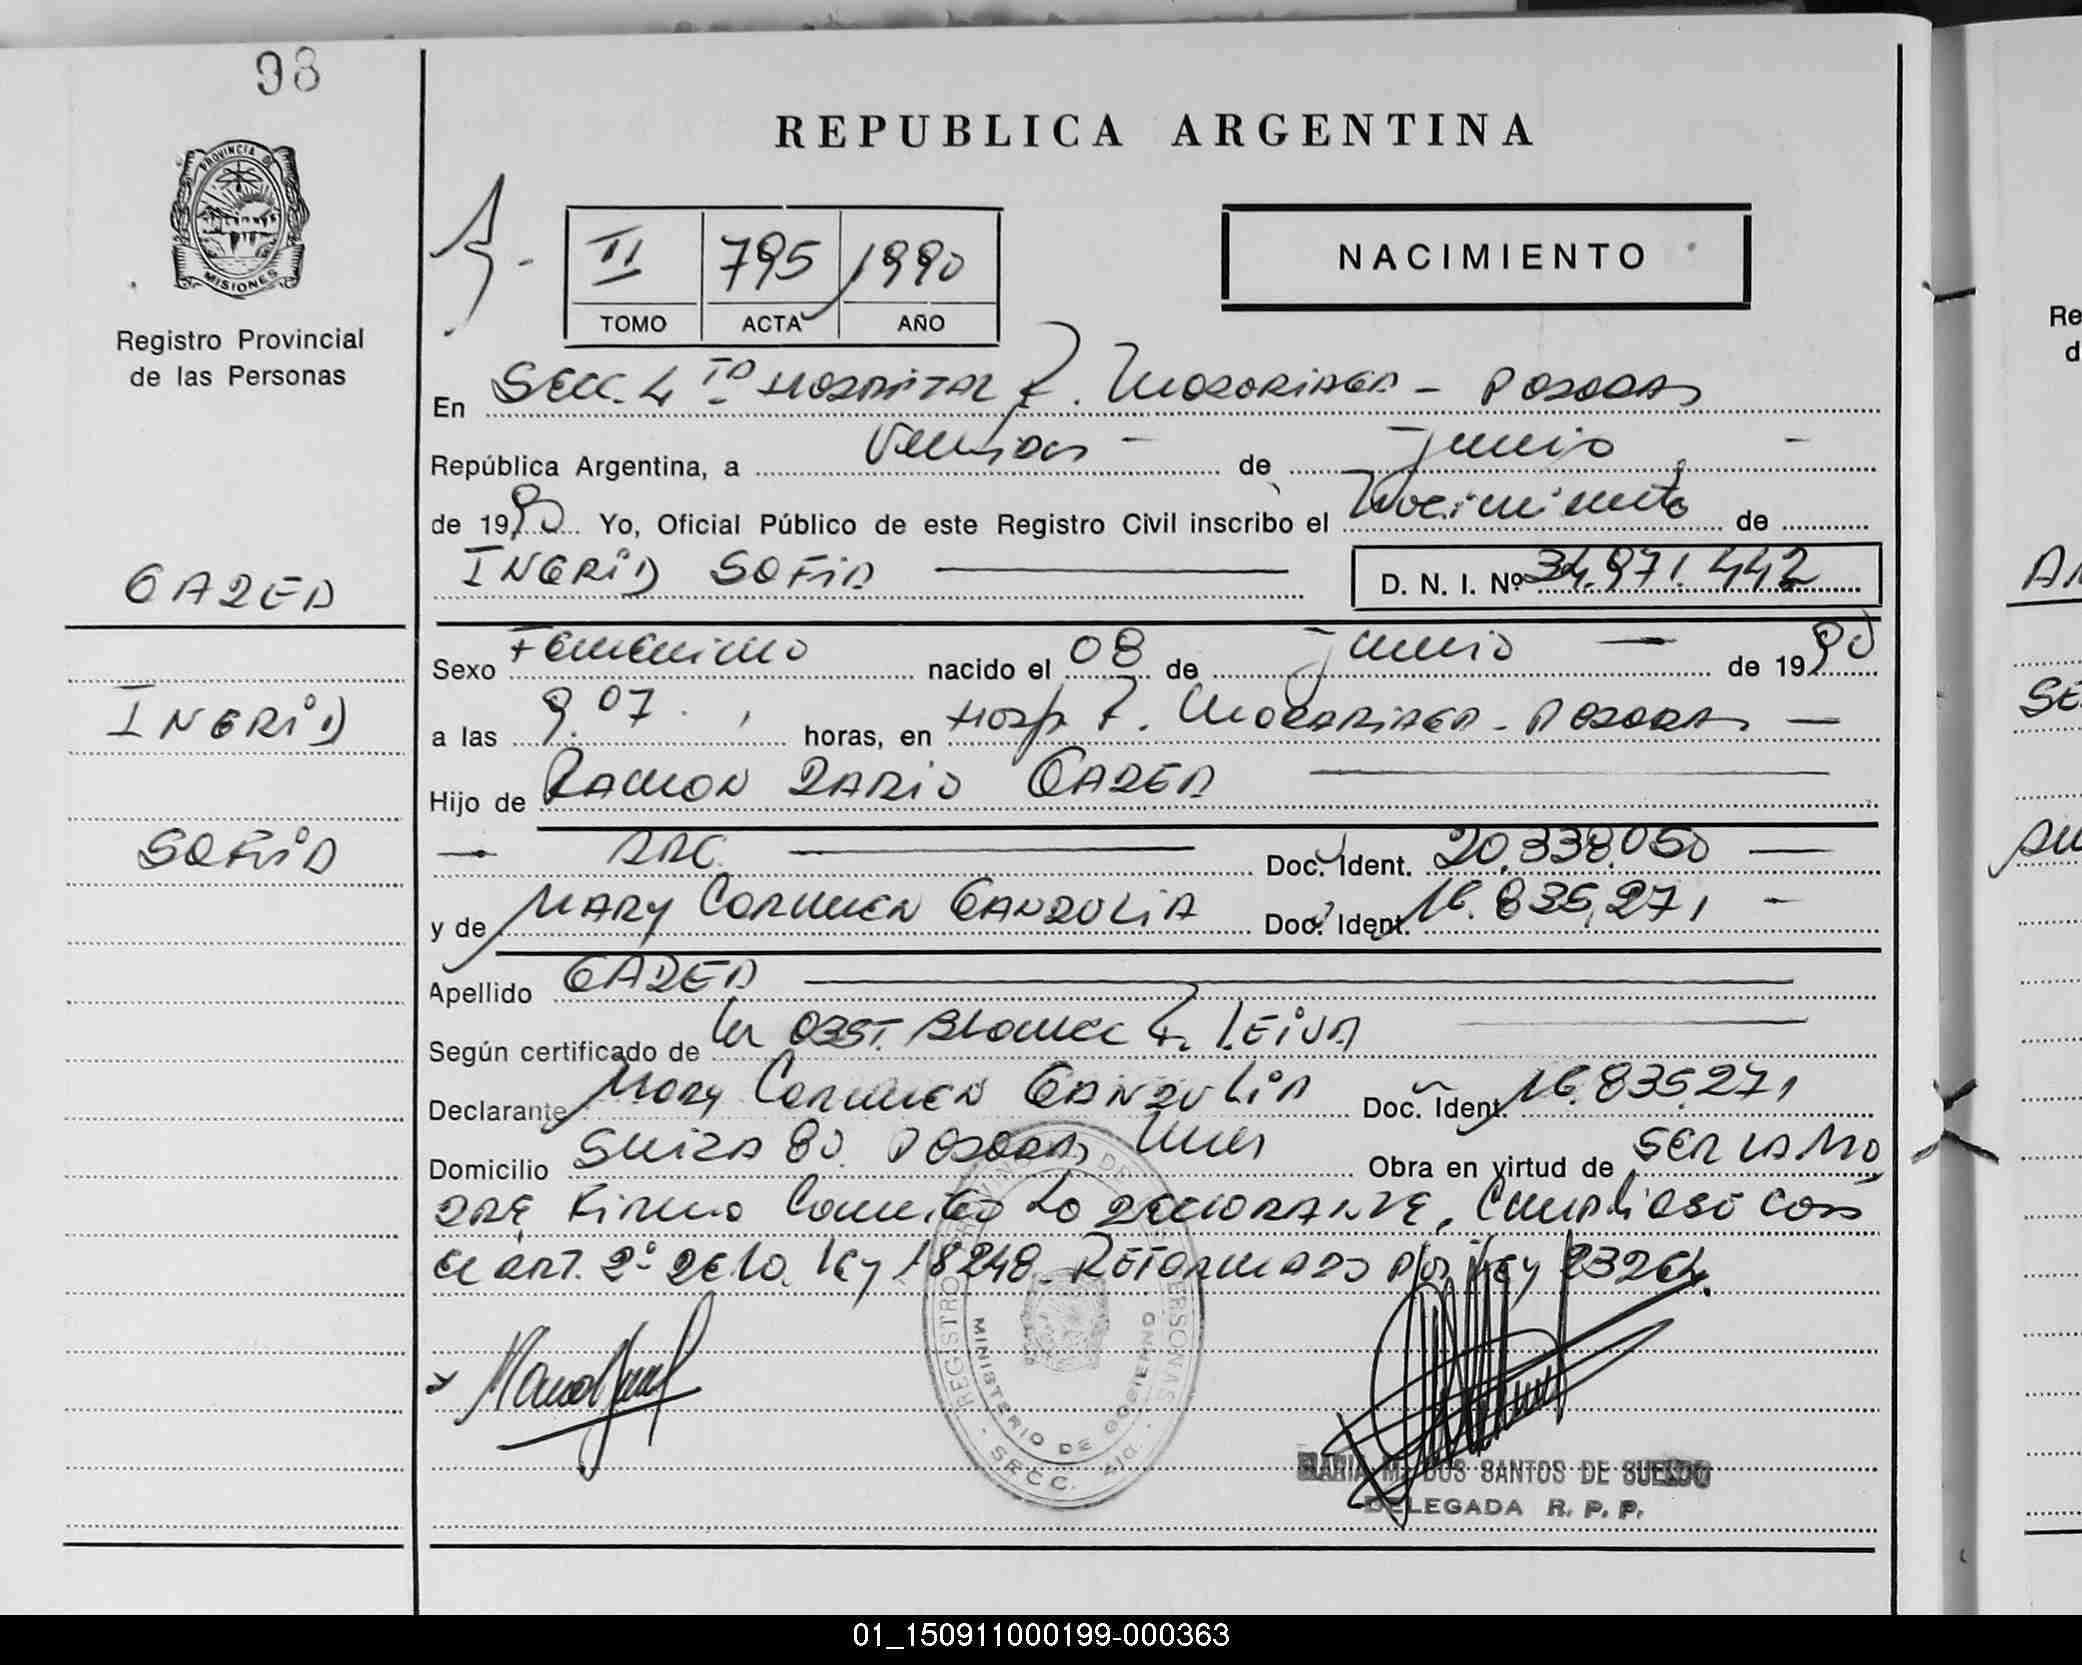 98
REPUBLICA ARGENTINA
PROVINCIA DE
MISIONES
Registro Provincial
de las Personas
II 795 1990
TOMO ACTA AÑO
NACIMIENTO
En Secc. 4 TA HOSPITAL R. Madariaga - POSADAS
República Argentina, a Veintidos - de Junio -
de 1990 Yo, Oficial Público de este Registro Civil inscribo el Nacimiento de
INGRID SOFIA D. N. I. Nº 34.971.442
GADEA
INGRID
SOFIA
Sexo Femenino nacido el 08 de Junio de 1990
a las 9.07. horas, en Hosp R. Madariaga - POSADAS
Hijo de RAMON DARIO GADEA
ARG. Doc. Ident. 20.338.050
y de MARY CARMEN GANDULIA Doc. Ident. 16.835.271 -
Apellido GADEA
Según certificado de la OBST. Blanca L. LEIVA
Declarante Mary CARMEN GANDULIA Doc. Ident. 16.835.271
Domicilio SUIZA 80. POSADAS Mnes Obra en virtud de SER LA MA
DRE Firma Conmigo La DECLARANTE, Cumpliose con
el ART. 2º de la Ley 18248. REFORMADO por Ley 23264.
REGISTRO PROVINCIAL DE LAS PERSONAS
MINISTERIO DE GOBIERNO
SECC. 4ta
MARIA M. DOS SANTOS DE SUELDO
DELEGADA R. P. P.
01_150911000199-000363